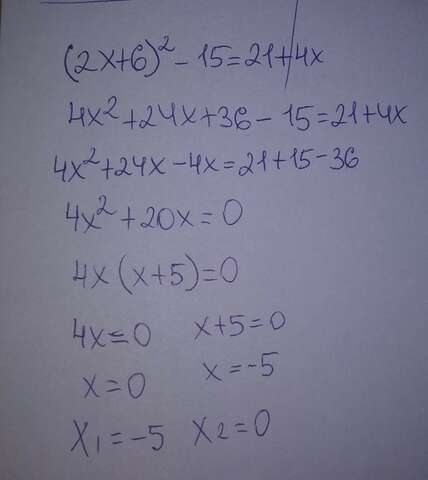 (2x+6)² - 15 = 21 + 4x
4x² + 24x + 36 - 15 = 21 + 4x
4x² + 24x - 4x = 21 + 15 - 36
4x² + 20x = 0
4x (x+5) = 0
4x = 0 x+5 = 0
x = 0 x = -5
x₁ = -5 x₂ = 0